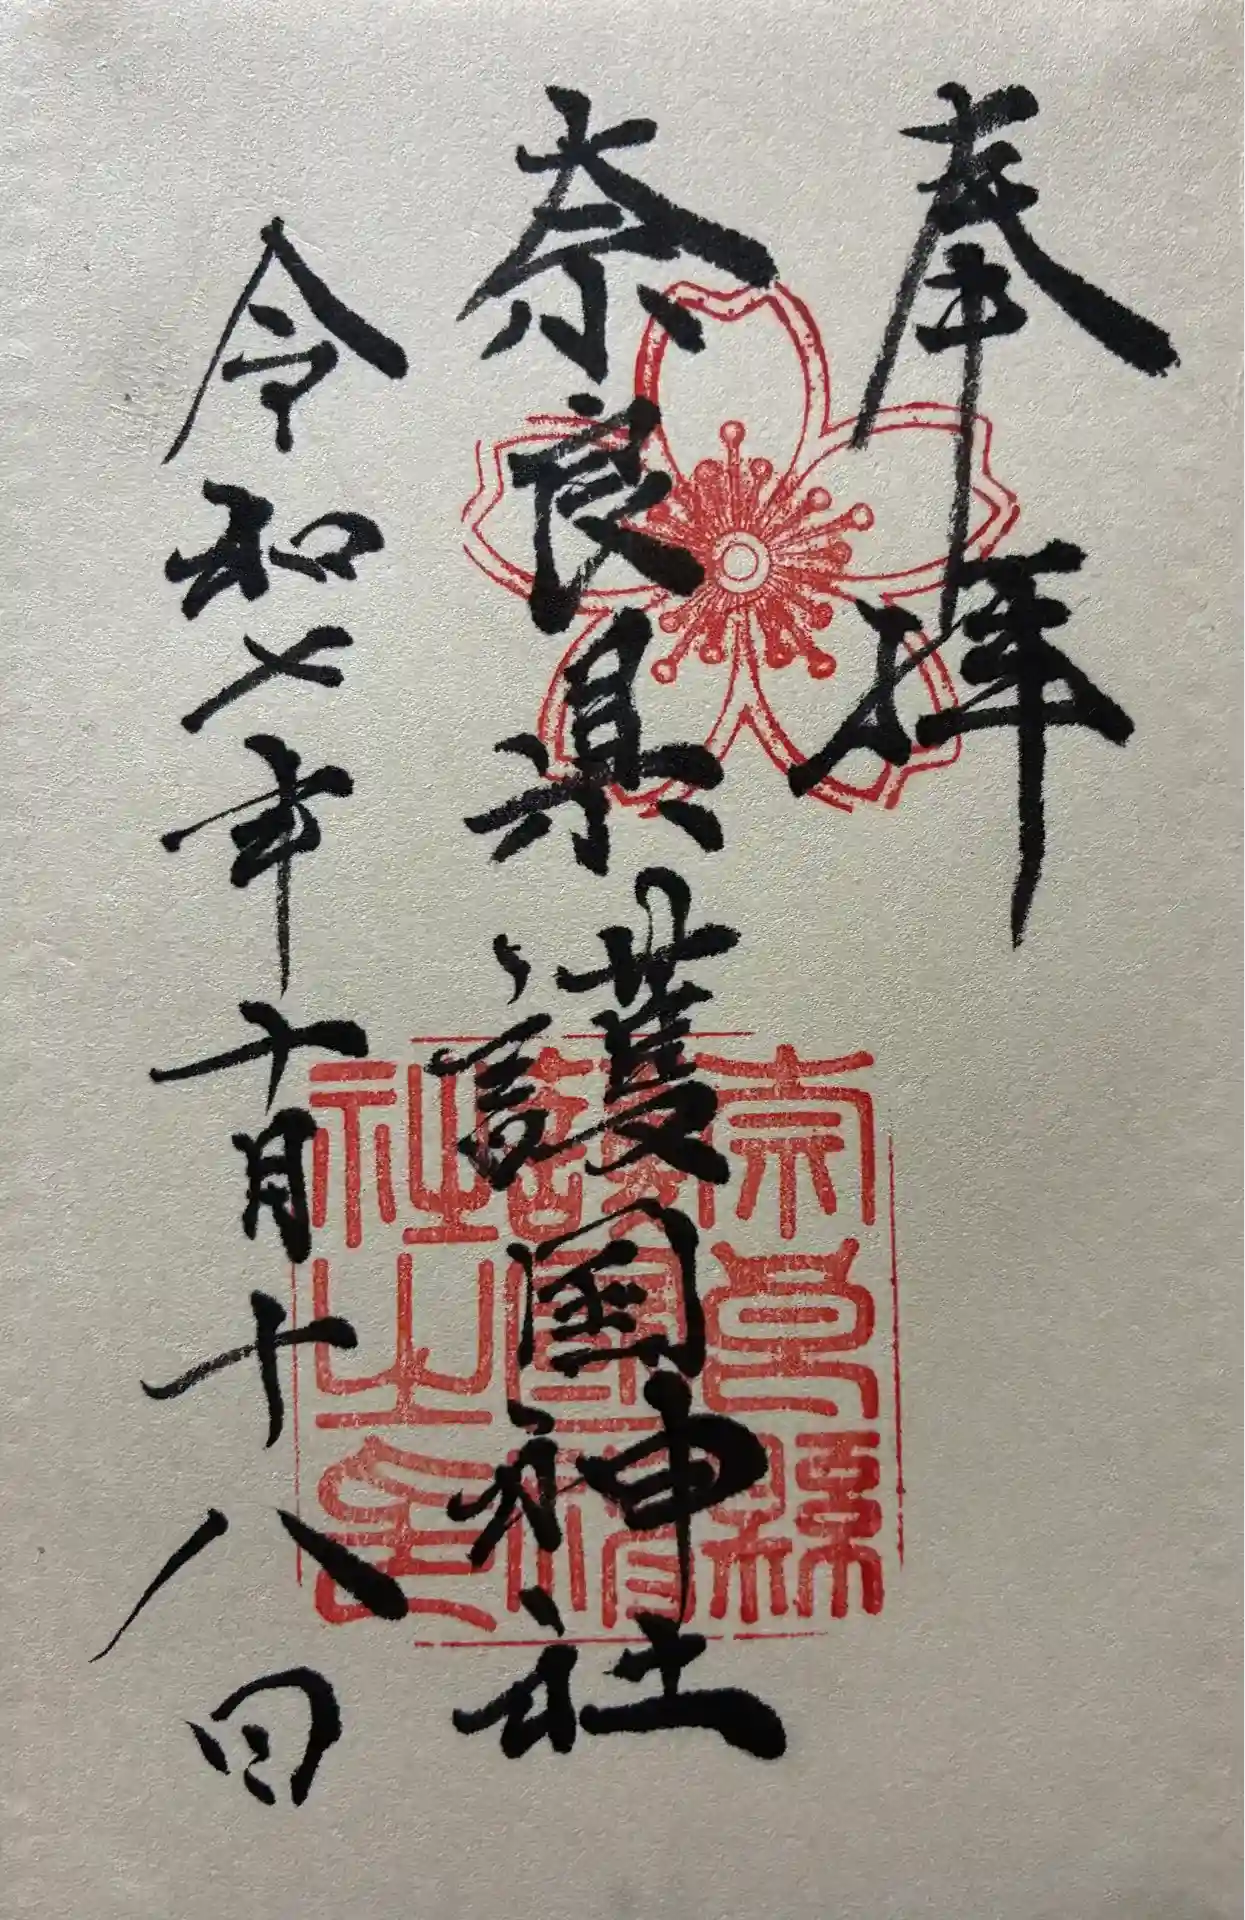 奉拝
奈良県護国神社
令和七年十月十八日
奈良縣
護國神
社之印